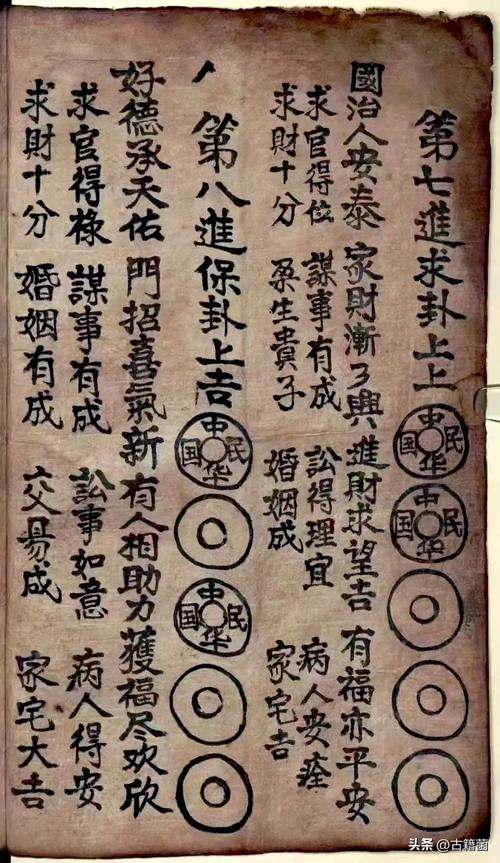 第七進求卦上上
中華民国
中華民国
國治人安泰 家財漸々興 進財求望吉 有福亦平安
求官得位 謀事有成 訟得理宜 病人安痊
求財十分 孕生貴子 婚姻成 家宅吉
第八進保卦上吉
中华民国
中华民国
好德承天佑 門招喜氣新 有人相助力 獲福尽欢欣
求官得禄 謀事有成 訟事如意 病人得安
求財十分 婚姻有成 交易成 家宅大吉
头条 @古籍菌